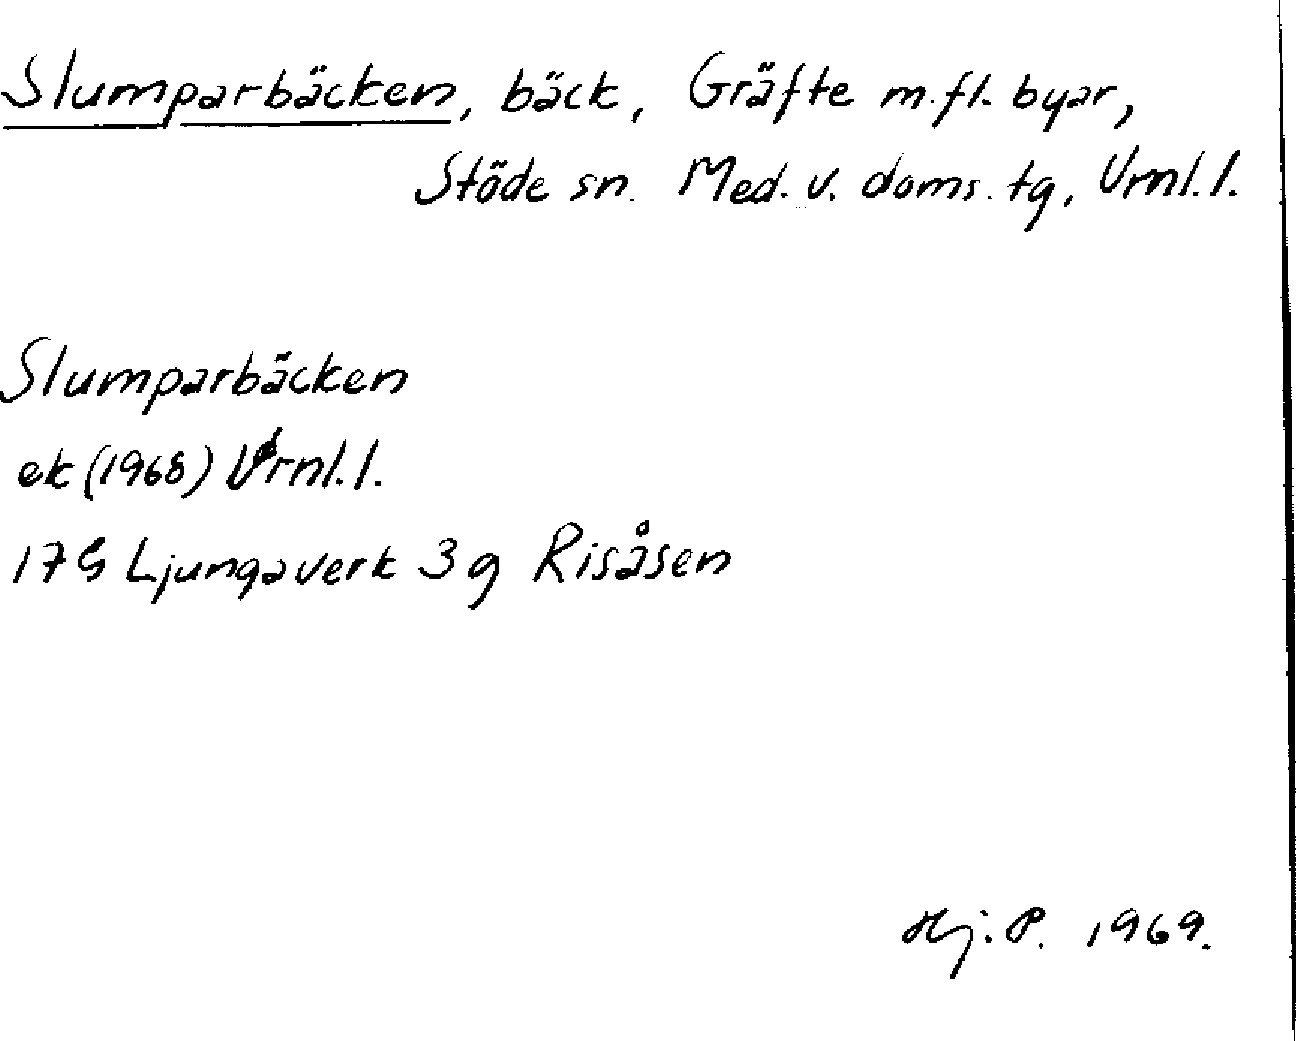 Slumparbäcken, bäck, Gräfte m.fl. byar,
Stöde sn. Med. v. doms. tg, Vrnl. l.
Slumparbäcken
ek (1968) Vrnl. l.
17G Ljungaverk 3g Risåsen
Hj. P. 1969.